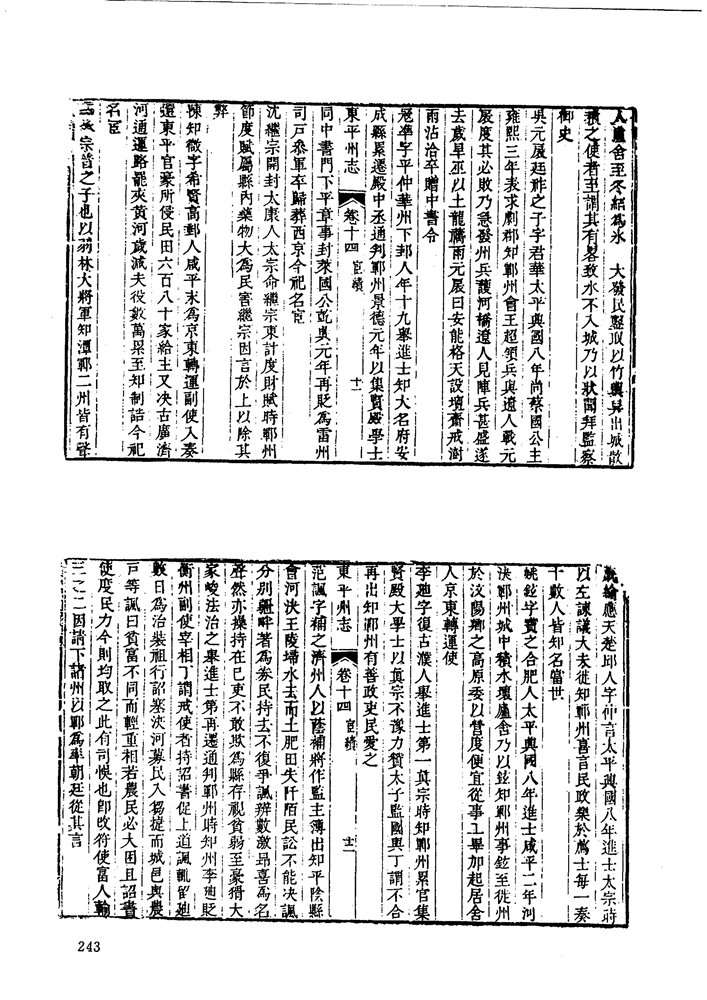 人廬舍至冬結為氷 大發民鑿取以竹輿舁出城散
積之使者至謂其有畧致水不入城乃以狀聞拜監察
御史
吳元扆廷祚之子字君華太平興國八年尚蔡國公主
雍熙三年表求劇郡知鄆州會王超領兵與遼人戰元
扆度其必敗乃急發州兵護河橋遼人見陣兵甚盛遂
去歲旱巫以土龍膺雨元扆曰安能格天設壇齋戒澍
雨沾洽卒贈中書令
寇準字平仲華州下邽人年十九舉進士知大名府安
成縣累遷殿中丞通判鄆州景德元年以集賢殿學士
東平州志 卷十四 宦績 十一
同中書門下平章事封萊國公乾興元年再貶為雷州
司戸叅軍卒歸葬西京今祀名宦
沈繼宗開封太康人太宗命繼宗東計度財賦時鄆州
節度賦屬縣內藥物大為民害繼宗因言於上以除其
弊
陳知微字希賢高郵人咸平末為京東轉運副使入奏
還東平官豪所侵民田六百八十家給主又决古廣濟
河通運路罷夾黃河歲減夫役數萬累至知制誥今祀
名宦
宗簹之子也以羽林大將軍知潭鄆二州皆有聲
綸應天楚邱人字仲言太平興國八年進士太宗時
以左諫議大夫徙知鄆州喜言民政樂於薦士每一奏
十數人皆知名當世
姚鉉字寶之合肥人太平興國八年進士咸平二年河
決鄆州城中積水壞廬舍乃以鉉知鄆州事鉉至徙州
於汶陽鄉之高原委以營度便宜從事工畢加起居舍
人京東轉運使
李迪字復古濮人舉進士第一真宗時知鄆州累官集
賢殿大學士以真宗不豫力贊太子監國與丁謂不合
再出知鄆州有善政吏民愛之
東平州志 卷十四 宦績 十二
范諷字補之濟州人以蔭補將作監主簿出知平陰縣
會河決王陵埽水去而土肥田失阡陌民訟不能决諷
分別疆畔著為劵民持去不復爭諷辨數激昂喜為名
聲然亦操持在已吏不敢欺為縣存視貧弱至豪猾大
家峻法治之舉進士第再遷通判鄆州時知州李迪貶
衡州副使宰相丁謂戒使者持詔書促上道諷輒留迪
數日為治裝祖行詔塞決河募民入芻揵而城邑與農
戸等諷曰貧富不同而輕重相若農民必大困且詔書
使度民力今則均取之此有司悞也卽改符使富人輸
三之二因請下諸州以鄆為率朝廷從其言
243